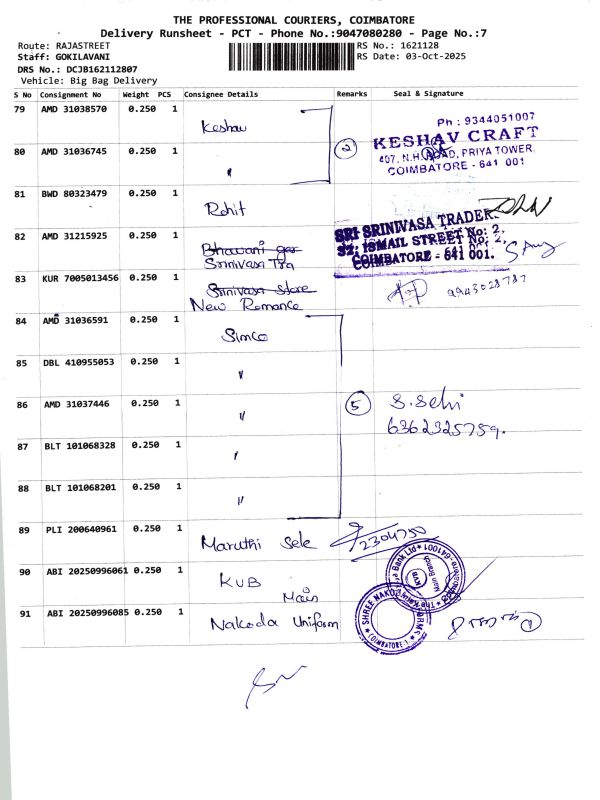 THE PROFESSIONAL COURIERS, COIMBATORE
Delivery Runsheet - PCT - Phone No.:9047080280 - Page No.:7
Route: RAJASTREET
RS No.: 1621128
Staff: GOKILAVANI
RS Date: 03-Oct-2025
DRS No.: DCJB162112807
Vehicle: Big Bag Delivery
S No Consignment No Weight PCS Consignee Details Remarks Seal & Signature
79 AMD 31038570 0.250 1 Keshav
Ph : 9344051007
KESHAV CRAFT
407, N.H. ROAD, PRIYA TOWER,
COIMBATORE - 641 001
80 AMD 31036745 0.250 1 " 2
81 BWD 80323479 0.250 1 Rohit
82 AMD 31215925 0.250 1 Bhavani
Srinivasa Tra
SRI SRINIVASA TRADERS
52, ISMAIL STREET No: 2,
COIMBATORE - 641 001.
83 KUR 7005013456 0.250 1 Srinivasa Store
New Romance
9943028787
84 AMD 31036591 0.250 1 Simco
85 DBL 410955053 0.250 1 "
86 AMD 31037446 0.250 1 " 5 S.Selvi
6362325759.
87 BLT 101068328 0.250 1 "
88 BLT 101068201 0.250 1 "
89 PLI 200640961 0.250 1 Maruthi Sele
2304750
90 ABI 20250996061 0.250 1 KVB
Main
KVB
Main Branch
91 ABI 20250996085 0.250 1 Nakoda Uniform
COIMBATORE-1